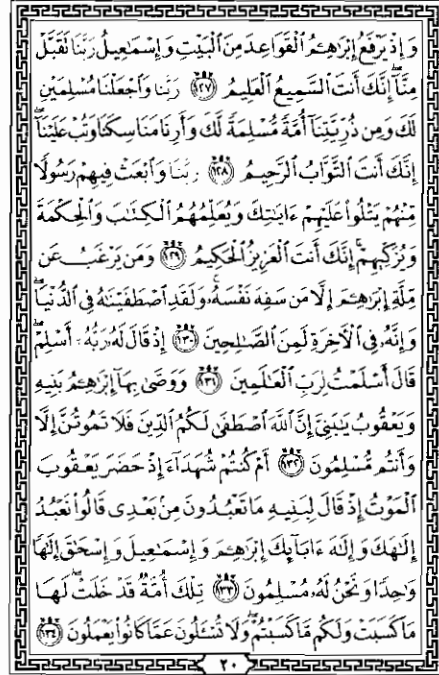 وَإِذۡ يَرۡفَعُ إِبۡرَٰهِـۧمُ ٱلۡقَوَاعِدَ مِنَ ٱلۡبَيۡتِ وَإِسۡمَٰعِيلُ رَبَّنَا تَقَبَّلۡ
مِنَّآۖ إِنَّكَ أَنتَ ٱلسَّمِيعُ ٱلۡعَلِيمُ ١٢٧ رَبَّنَا وَٱجۡعَلۡنَا مُسۡلِمَيۡنِ
لَكَ وَمِن ذُرِّيَّتِنَآ أُمَّةٗ مُّسۡلِمَةٗ لَّكَ وَأَرِنَا مَنَاسِكَنَا وَتُبۡ عَلَيۡنَآۖ
إِنَّكَ أَنتَ ٱلتَّوَّابُ ٱلرَّحِيمُ ١٢٨ رَبَّنَا وَٱبۡعَثۡ فِيهِمۡ رَسُولٗا
مِّنۡهُمۡ يَتۡلُواْ عَلَيۡهِمۡ ءَايَٰتِكَ وَيُعَلِّمُهُمُ ٱلۡكِتَٰبَ وَٱلۡحِكۡمَةَ
وَيُزَكِّيهِمۡۚ إِنَّكَ أَنتَ ٱلۡعَزِيزُ ٱلۡحَكِيمُ ١٢٩ وَمَن يَرۡغَبُ عَن
مِّلَّةِ إِبۡرَٰهِـۧمَ إِلَّا مَن سَفِهَ نَفۡسَهُۥۚ وَلَقَدِ ٱصۡطَفَيۡنَٰهُ فِي ٱلدُّنۡيَاۖ
وَإِنَّهُۥ فِي ٱلۡأٓخِرَةِ لَمِنَ ٱلصَّٰلِحِينَ ١٣٠ إِذۡ قَالَ لَهُۥ رَبُّهُۥٓ أَسۡلِمۡۖ
قَالَ أَسۡلَمۡتُ لِرَبِّ ٱلۡعَٰلَمِينَ ١٣١ وَوَصَّىٰ بِهَآ إِبۡرَٰهِـۧمُ بَنِيهِ
وَيَعۡقُوبُ يَٰبَنِيَّ إِنَّ ٱللَّهَ ٱصۡطَفَىٰ لَكُمُ ٱلدِّينَ فَلَا تَمُوتُنَّ إِلَّا
وَأَنتُم مُّسۡلِمُونَ ١٣٢ أَمۡ كُنتُمۡ شُهَدَآءَ إِذۡ حَضَرَ يَعۡقُوبَ
ٱلۡمَوۡتُ إِذۡ قَالَ لِبَنِيهِ مَا تَعۡبُدُونَ مِنۢ بَعۡدِي قَالُواْ نَعۡبُدُ
إِلَٰهَكَ وَإِلَٰهَ ءَابَآئِكَ إِبۡرَٰهِـۧمَ وَإِسۡمَٰعِيلَ وَإِسۡحَٰقَ إِلَٰهٗا
وَٰحِدٗا وَنَحۡنُ لَهُۥ مُسۡلِمُونَ ١٣٣ تِلۡكَ أُمَّةٞ قَدۡ خَلَتۡۖ لَهَا
مَا كَسَبَتۡ وَلَكُم مَّا كَسَبۡتُمۡۖ وَلَا تُسۡـَٔلُونَ عَمَّا كَانُواْ يَعۡمَلُونَ ١٣٤
٢٠